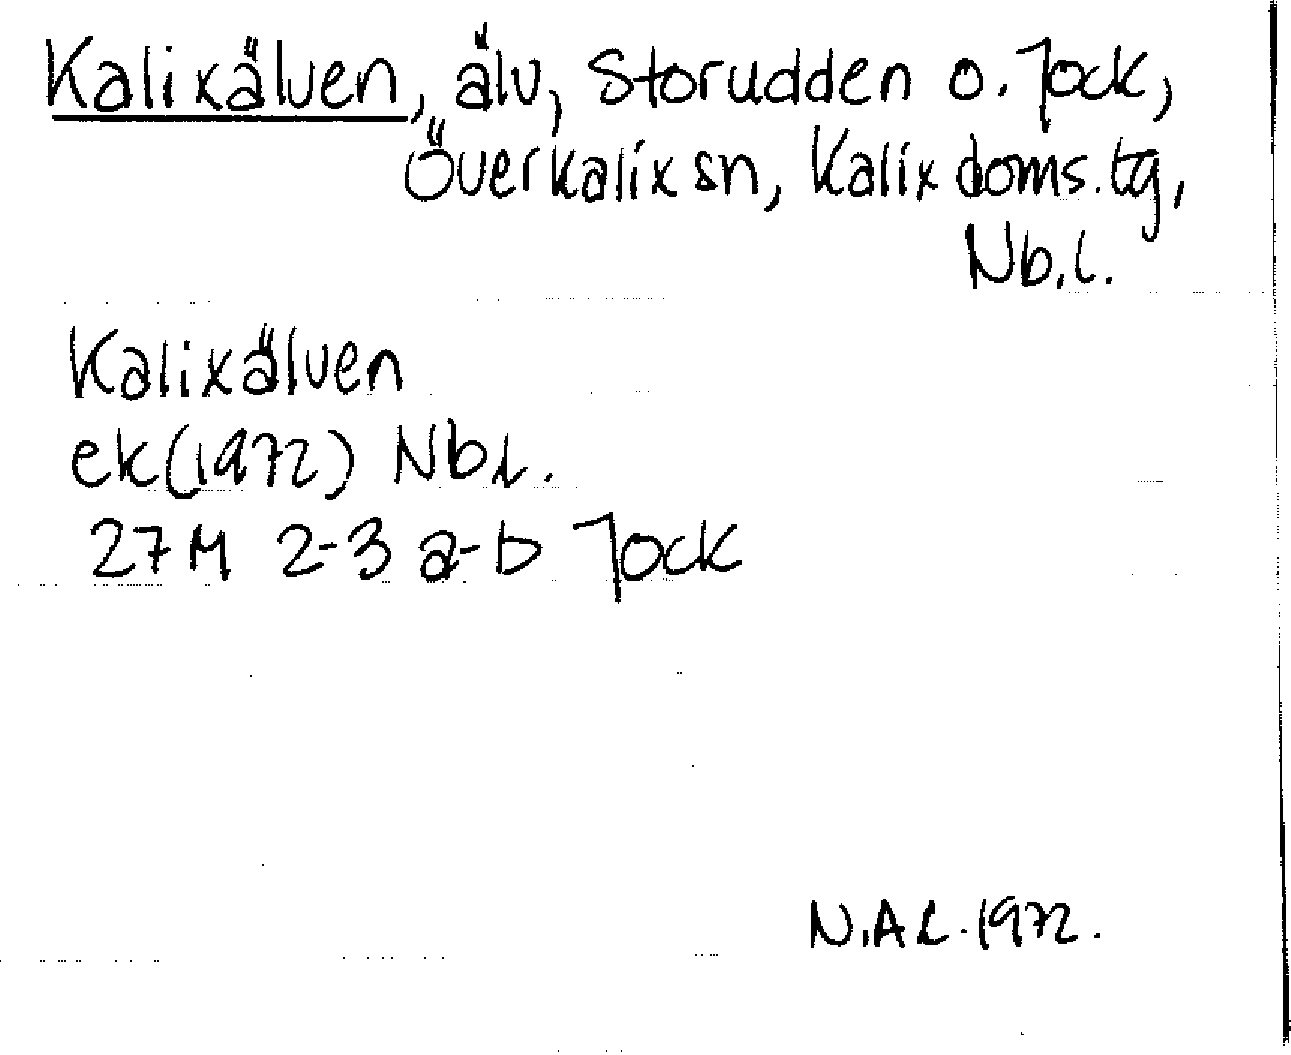 Kalixälven, älv, Storudden o. Jock,
Överkalix sn, Kalix doms. tg,
Nb.l.
Kalixälven
ek (1972) Nb l.
27 M 2-3 a-b Jock
N.A L. 1972.